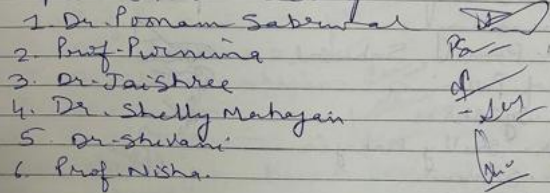 1. Dr. Poonam Sabrwal
2. Prof. Purnima
3. Dr. Jaishree
4. Dr. Shelly Mahajan
5 Dr. Shivani
6. Prof. Nisha.